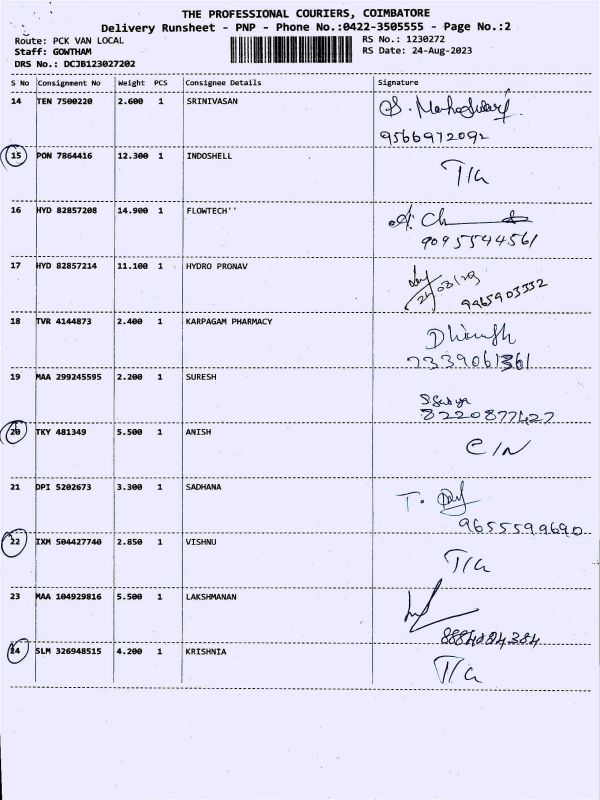 THE PROFESSIONAL COURIERS, COIMBATORE
Delivery Runsheet - PNP - Phone No.:0422-3505555 - Page No.:2
Route: PCK VAN LOCAL RS No.: 1230272
Staff: GOWTHAM RS Date: 24-Aug-2023
DRS No.: DCJB123027202
S No Consignment No Weight PCS Consignee Details Signature
14 TEN 7500220 2.600 1 SRINIVASAN
9566972092
15 PON 7864416 12.300 1 INDOSHELL
T/G
16 HYD 82857208 14.900 1 FLOWTECH''
9095544561
17 HYD 82857214 11.100 1 HYDRO PRONAV
24/08/23
9965903332
18 TVR 4144873 2.400 1 KARPAGAM PHARMACY
7339061361
19 MAA 299245595 2.200 1 SURESH
8220877427
20 TKY 481349 5.500 1 ANISH
C/N
21 DPI 5202673 3.300 1 SADHANA
9655599690
22 IXM 504427740 2.850 1 VISHNU
T/G
23 MAA 104929816 5.500 1 LAKSHMANAN
8884084384
24 SLM 326948515 4.200 1 KRISHNIA
T/G